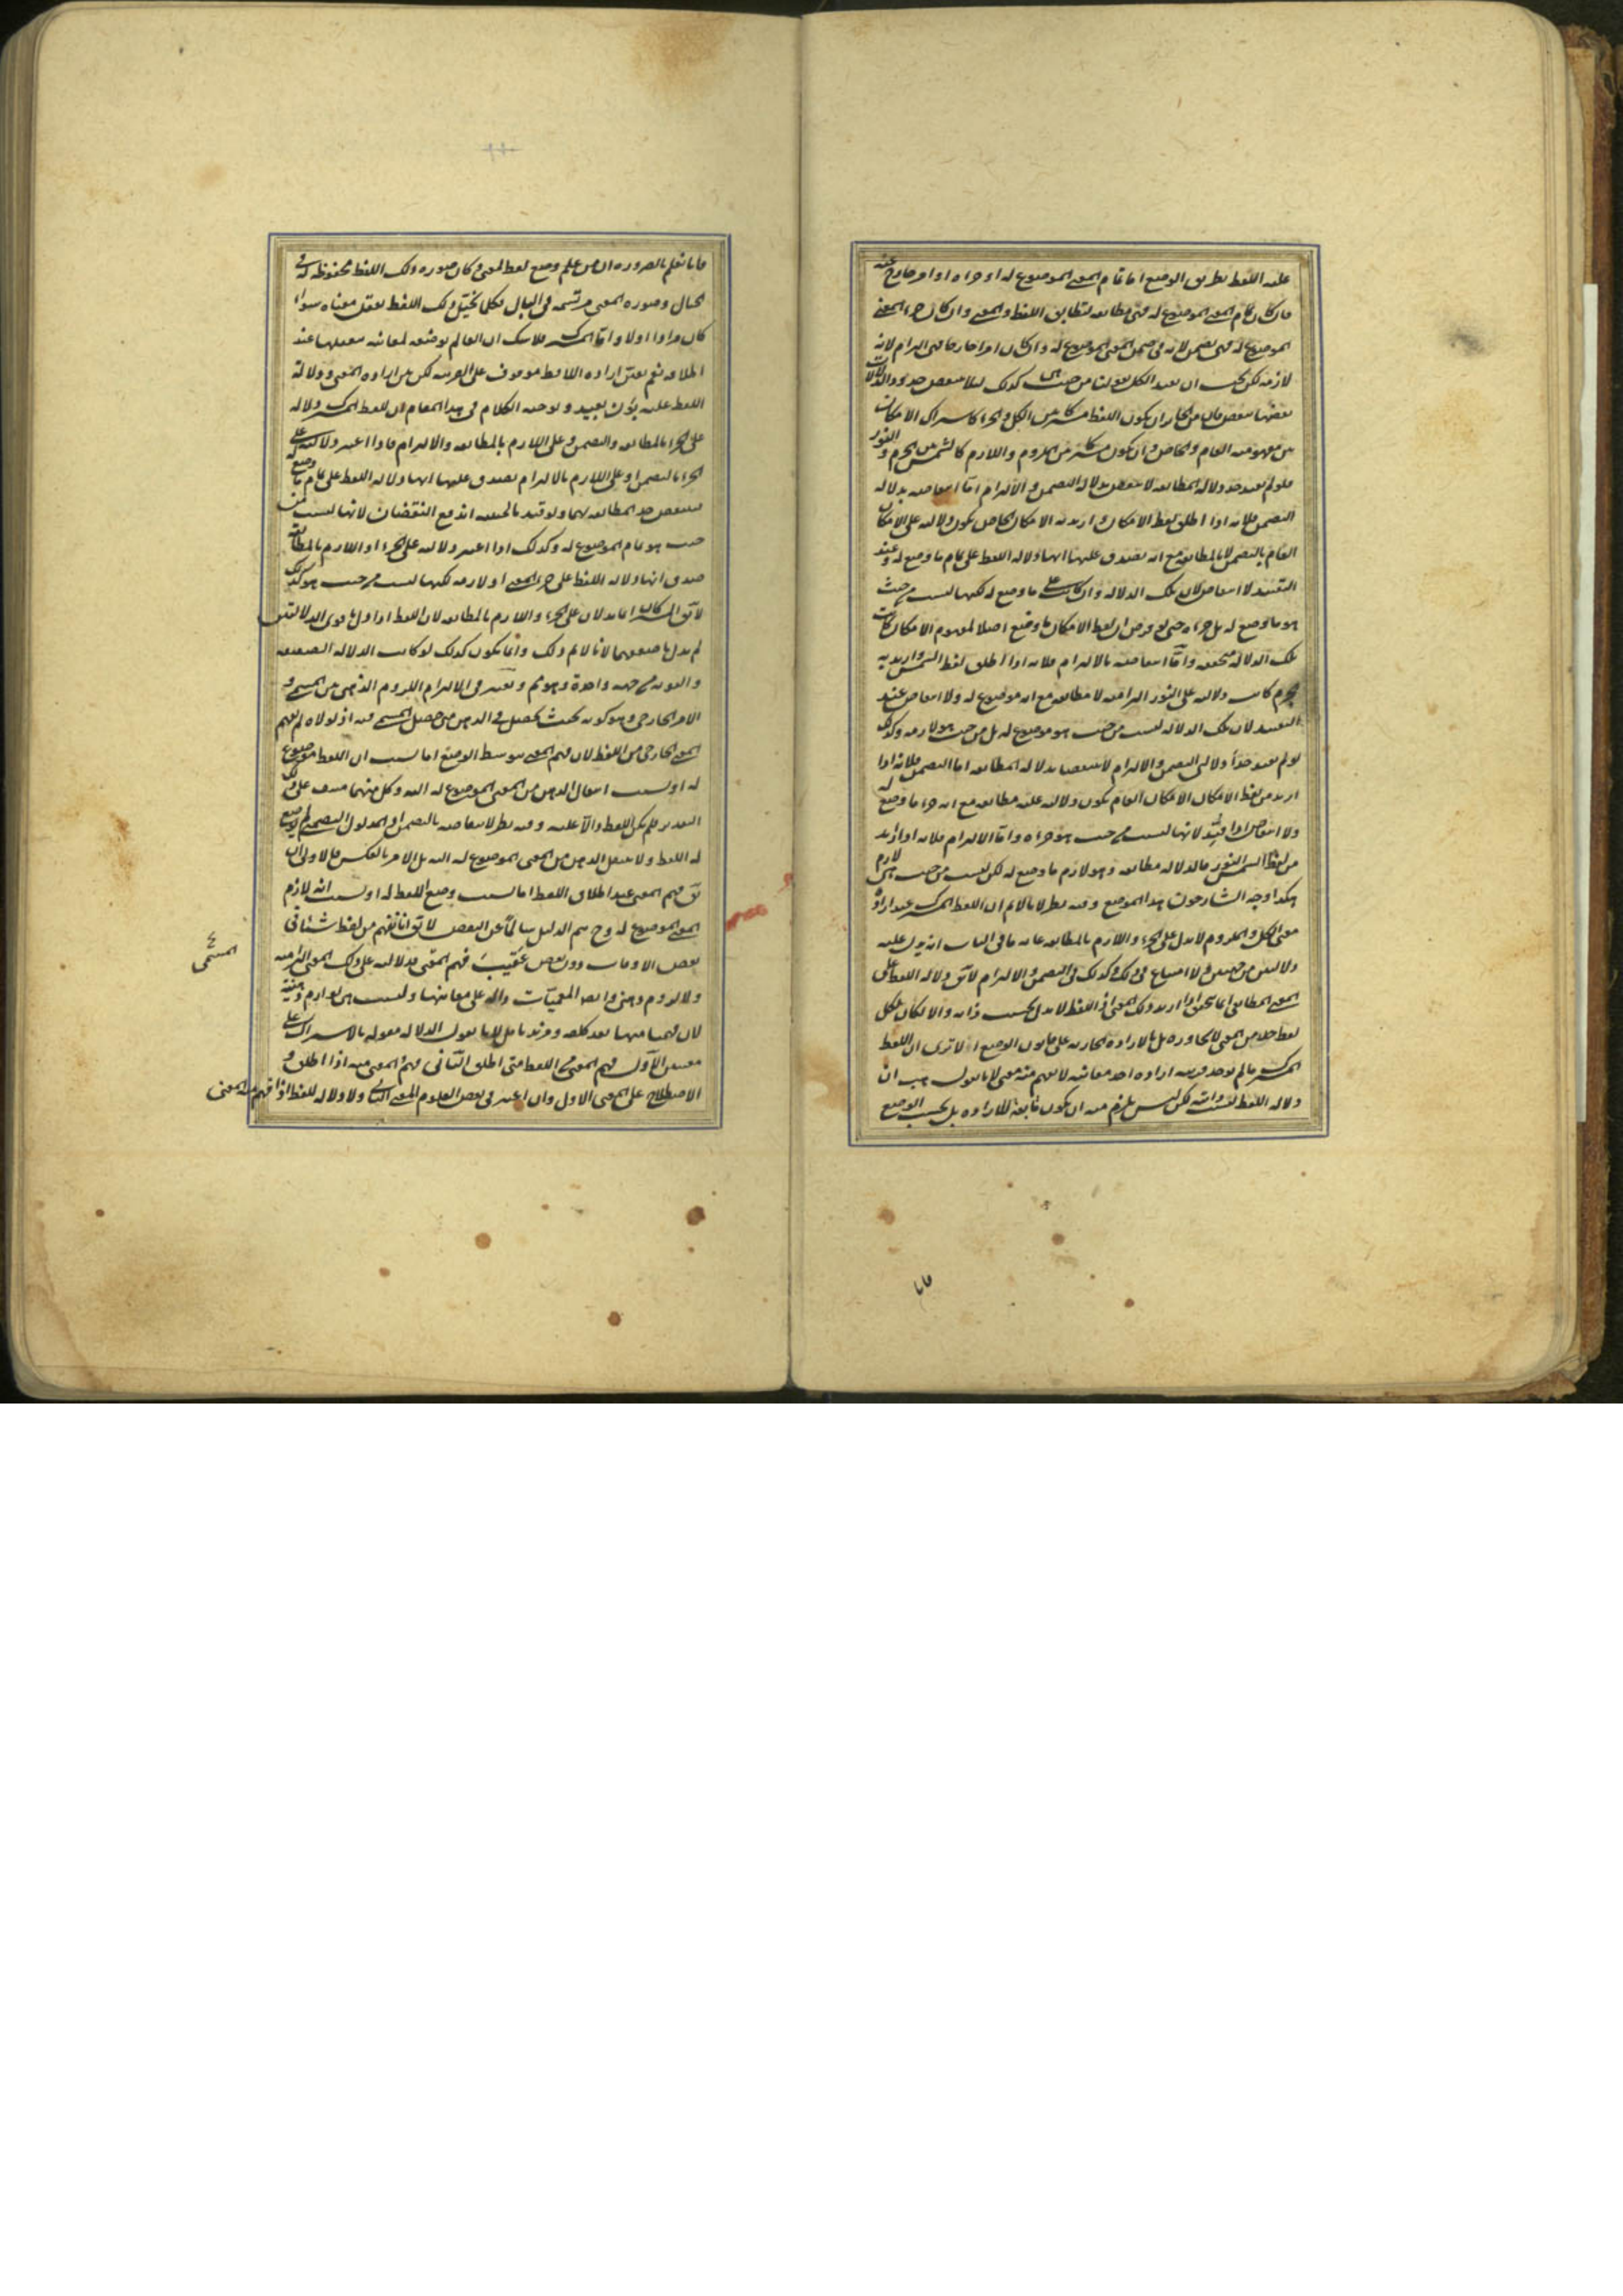 عليه اللفظ بطريق الوضع اما تمام المعنى الموضوع له او جزءه او امر خارج عنه
فان كان تمام المعنى الموضوع له فهى مطابقة لتطابق اللفظ والمعنى وان كان جزء المعنى
الموضوع له فهى تضمن لانه فى ضمن المعنى الموضوع له وان كان امرا خارجا فهى التزام لانه
لازمه لكن يجب ان يقيد الكل بقولنا من حيث هى كذلك لئلا ينتقض حدود الدلالات
بعضها ببعض فان من الجائز ان يكون اللفظ مشتركا بين الكل والجزء كاشتراك الامكان
بين مفهوميه العام والخاص وان يكون مشتركا بين الملزوم واللازم كالشمس بين الجرم والنور
فلو لم يقيد حد دلالة المطابقة لانتقض بدلالة التضمن والالتزام اما انتقاضه بدلالة
التضمن فلانه اذا اطلق لفظ الامكان واريد به الامكان الخاص يكون دلالته على الامكان
العام بالتضمن لا بالمطابقة مع انه يصدق عليها انها دلالة اللفظ على تمام ما وضع له وعند
التقييد لا انتقاض لان تلك الدلالة وان كانت على ما وضع له لكنها ليست من حيث
هو ما وضع له بل جزءه حتى لو فرض ان لفظ الامكان ما وضع اصلا لمفهوم الامكان كانت
تلك الدلالة متحققة واما انتقاضه بالالتزام فلانه اذا اطلق لفظ الشمس واريد به
الجرم كانت دلالته على النور التزامية لا مطابقة مع انه موضوع له ولا انتقاض عند
التقييد لان تلك الدلالة ليست من حيث هو موضوع له بل من حيث هو لازمه وكذلك
لو لم يقيد حدا دلالتى التضمن والالتزام لانتقضا بدلالة المطابقة اما التضمن فلانه اذا
اريد من لفظ الامكان الامكان العام يكون دلالته عليه مطابقة مع انه جزء ما وضع له
ولا انتقاض اذا قيد لانها ليست من حيث هو جزءه واما الالتزام فلانه اذا اريد
من لفظ الشمس النور فالدلالة مطابقة وهو لازم ما وضع له لكن ليست من حيث هى لازم
هكذا وجه الشارحون هذا الموضع وفيه نظر لانا لا نم ان اللفظ المشترك عند ارادة
معنى الكل والملزوم لا يدل على الجزء واللازم بالمطابقة غاية ما فى الباب انه يدل عليه
دلالتين من جهتين ولا امتناع فى ذلك وكذلك فى التضمن والالتزام لا يق دلالة اللفظ على
المعنى المطابقى انما يتحقق اذا اريد ذلك المعنى اذ اللفظ لا يدل بحسب ذاته والا لكان لكل
لفظ حق من المعنى لا يجاوزه بل بالارادة الجارية على قانون الوضع الا ترى ان اللفظ
المشترك ما لم يوجد قرينة ارادة احد معانيه لا يفهم منه معنى لانا نقول هب ان
دلالة اللفظ ليست ذاتية لكن ليس يلزم منه ان يكون تابعة للارادة بل بحسب الوضع
فانا نعلم بالضرورة ان من علم وضع لفظ لمعنى وكان صورة ذلك اللفظ محفوظة له فى
الخيال وصورة المعنى مرتسمة فى البال فكلما تخيل ذلك اللفظ تعقل معناه سواء
كان مرادا اولا واما المشترك فلا شك ان العالم بوضعه لمعانيه يتعقلها عند
اطلاقه نعم تعين ارادة اللافظ موقوف على القرينة لكن بين ارادة المعنى ودلالة
اللفظ عليه بون بعيد وتوجيه الكلام فى هذا المقام ان للفظ المشترك دلالة
على الجزء بالمطابقة والتضمن وعلى اللازم بالمطابقة والالتزام فاذا اعتبر دلالته على
الجزء بالتضمن او على اللازم بالالتزام يصدق عليها انها دلالة اللفظ على تمام ما وضع له
فينتقض حد المطابقة بهما ولو قيد بالحيثية اندفع النقضان لانها ليست من
حيث هو تمام الموضوع له وكذلك اذا اعتبر دلالته على الجزء او اللازم بالمطابقة
صدق انها دلالة اللفظ على جزء المعنى او لازمه لكنها ليست من حيث هو كذلك
لا يق المشتركان انما يدلان على الجزء واللازم بالمطابقة لان اللفظ اذا دل باقوى الدلالتين
لم يدل باضعفهما لانا لا نم ذلك وانما يكون كذلك لو كانت الدلالة الضعيفة
والقوية من جهة واحدة وهو مم ويعتبر فى الالتزام اللزوم الذهنى بين المسمى و
الامر الخارجى وهو كونه بحيث يحصل فى الذهن متى حصل المسمى فيه اذ لولاه لم يفهم
المعنى الخارجى من اللفظ لان فهم المعنى بتوسط الوضع اما بسبب ان اللفظ موضوع
له او بسبب انتقال الذهن من المعنى الموضوع له اليه وكل منهما منتف على ذلك
التقدير فلم يكن اللفظ دالا عليه وفيه نظر لانتقاضه بالتضمن اذ المدلول التضمنى لم يوضع
له اللفظ ولا ينتقل الذهن من المعنى الموضوع له اليه بل الامر بالعكس فالاولى ان
يق فهم المعنى عند اطلاق اللفظ اما بسبب وضع اللفظ له او بسبب انه لازم
المعنى الموضوع له وح يتم الدليل سالما عن النقض لا يق انا نفهم من لفظ شيئا فى
بعض الاوقات دون بعض عقيب فهم المعنى فدلالته على ذلك المعنى التزامية
ولا لزوم ذهنى وايضا المعميات دالة على معانيها وليست هى لوازم ذهنية
لان فهمها منها بعد كلفة ومزيد تأمل لانا نقول الدلالة مقولة بالاشتراك على
معنيين الاول فهم المعنى من اللفظ متى اطلق الثانى فهم المعنى منه اذا اطلق و
الاصطلاح على المعنى الاول وان اعتبر فى بعض العلوم المعنى الثانى ولا دلالة للفظ اذا فهم منه المعنى
المسمى